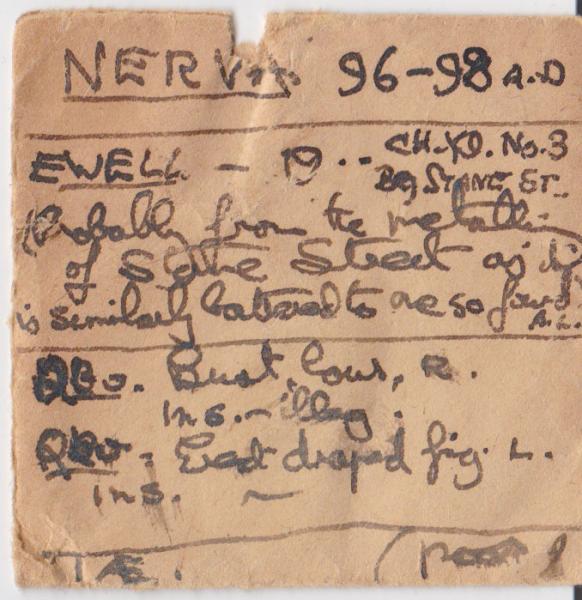 NERVA. 96-98 A.D
EWELL - 19.. CH.YD. No.3
B9 STANE ST.
(Probably from the metalling
of Stane Street as it
is similarly battered to one so found
A.L.
Obv. Bust, laur, R.
ins. - illeg.
Rev. - Erect draped fig. L.
ins. ~
Æ. (poor)